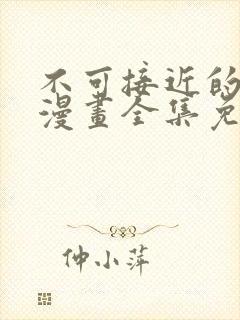 不可接近的
漫畫全集免
仲小萍